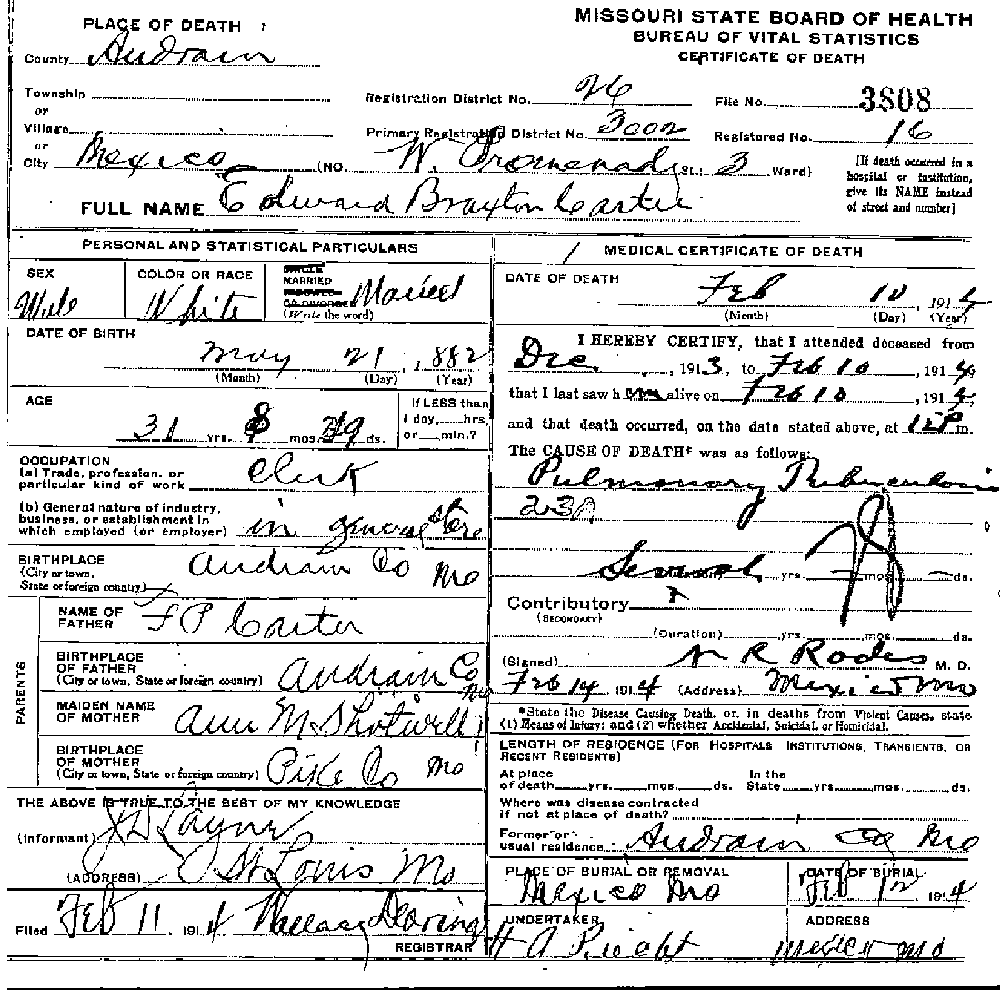 MISSOURI STATE BOARD OF HEALTH
BUREAU OF VITAL STATISTICS
CERTIFICATE OF DEATH
PLACE OF DEATH
County Audrain
Township
or
Village
or
City Mexico (NO. W. Promenade St.; 3 Ward)
Registration District No. 26 File No. 3808
Primary Registration District No. 3002 Registered No. 16
[If death occurred in a
hospital or institution,
give its NAME instead
of street and number]
FULL NAME Edward Braxton Carter
PERSONAL AND STATISTICAL PARTICULARS
SEX
Male
COLOR OR RACE
White
SINGLE
MARRIED
WIDOWED
OR DIVORCED
(Write the word)
Married
DATE OF BIRTH
May 21, 1882
(Month) (Day) (Year)
AGE
31 yrs. 8 mos. ds.
If LESS than
1 day, hrs.
or min.?
OCCUPATION
(a) Trade, profession, or
particular kind of work Clerk
(b) General nature of industry,
business, or establishment in
which employed (or employer) in general store
BIRTHPLACE
(City or town,
State or foreign country) Audrain Co Mo
PARENTS
NAME OF
FATHER F P Carter
BIRTHPLACE
OF FATHER
(City or town, State or foreign country) Audrain Co Mo
MAIDEN NAME
OF MOTHER Ann M Shotwell
BIRTHPLACE
OF MOTHER
(City or town, State or foreign country) Pike Co Mo
THE ABOVE IS TRUE TO THE BEST OF MY KNOWLEDGE
(Informant)
(ADDRESS) St Louis Mo
Filed Feb 11 1914
REGISTRAR
MEDICAL CERTIFICATE OF DEATH
DATE OF DEATH
Feb 10 1914
(Month) (Day) (Year)
I HEREBY CERTIFY, that I attended deceased from
Dec , 1913, to Feb 10 , 1914,
that I last saw h alive on Feb 10 , 1914,
and that death occurred, on the date stated above, at m.
The CAUSE OF DEATH* was as follows:
Pulmonary Tuberculosis
23A
Several yrs. mos. ds.
Contributory
(SECONDARY)
(Duration) yrs. mos. ds.
(Signed) N R Rodes M. D.
Feb 14 1914 (Address) Mexico Mo
*State the Disease Causing Death, or, in deaths from Violent Causes, state
(1) Means of Injury; and (2) whether Accidental, Suicidal, or Homicidal.
LENGTH OF RESIDENCE (FOR HOSPITALS INSTITUTIONS, TRANSIENTS, OR
RECENT RESIDENTS)
At place In the
of death yrs. mos. ds. State yrs. mos. ds.
Where was disease contracted
if not at place of death?
Former or
usual residence Audrain Co Mo
PLACE OF BURIAL OR REMOVAL
Mexico Mo
DATE OF BURIAL
Feb 12 1914
UNDERTAKER
ADDRESS
Mexico Mo